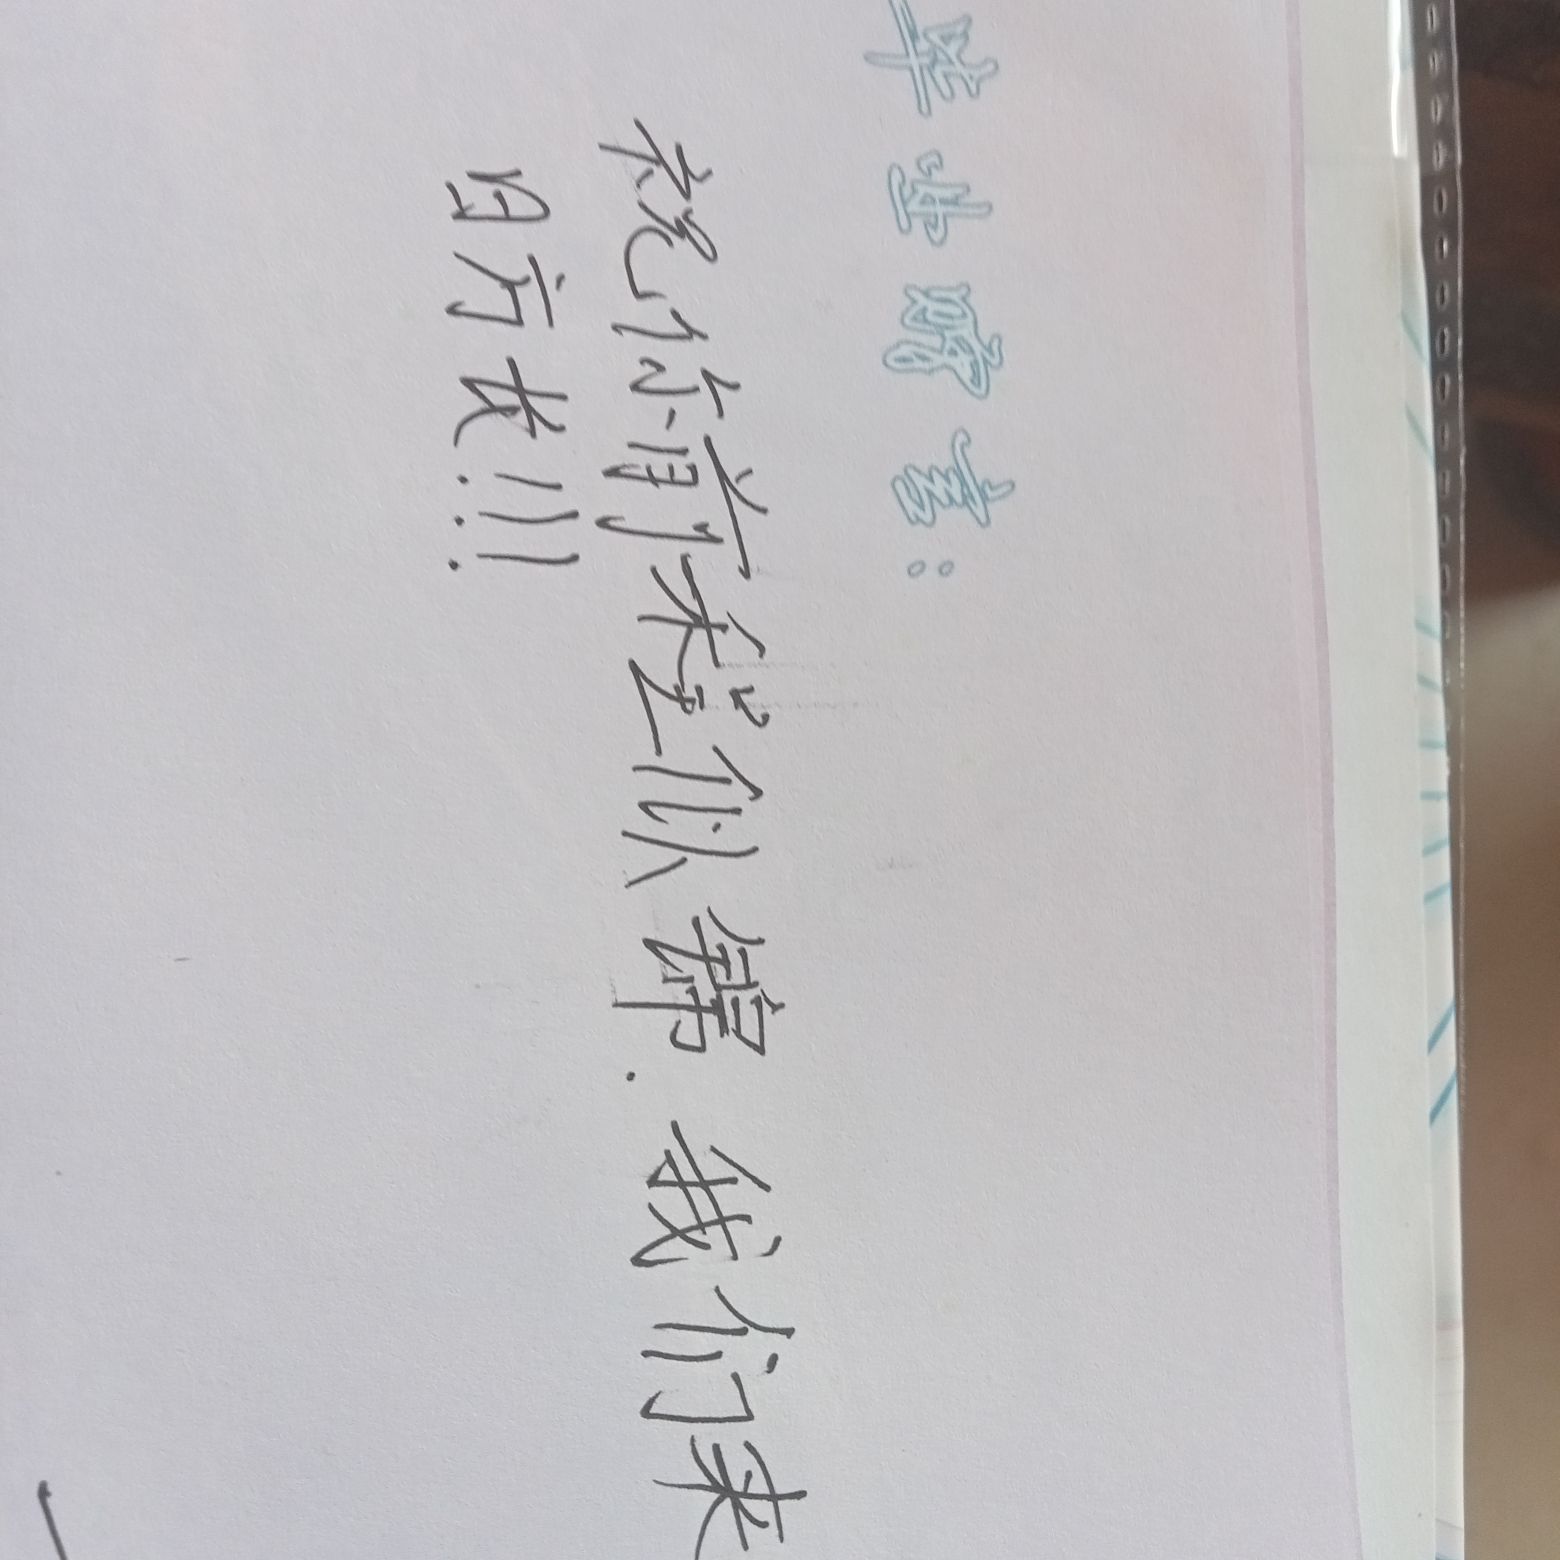 毕业赠言：
祝你前途似锦.我们来
日方长!!!